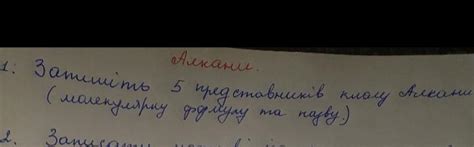 Алкани.
1. Запишіть 5 представників класу Алкани
(молекулярну формулу та назву.)
2. Записати